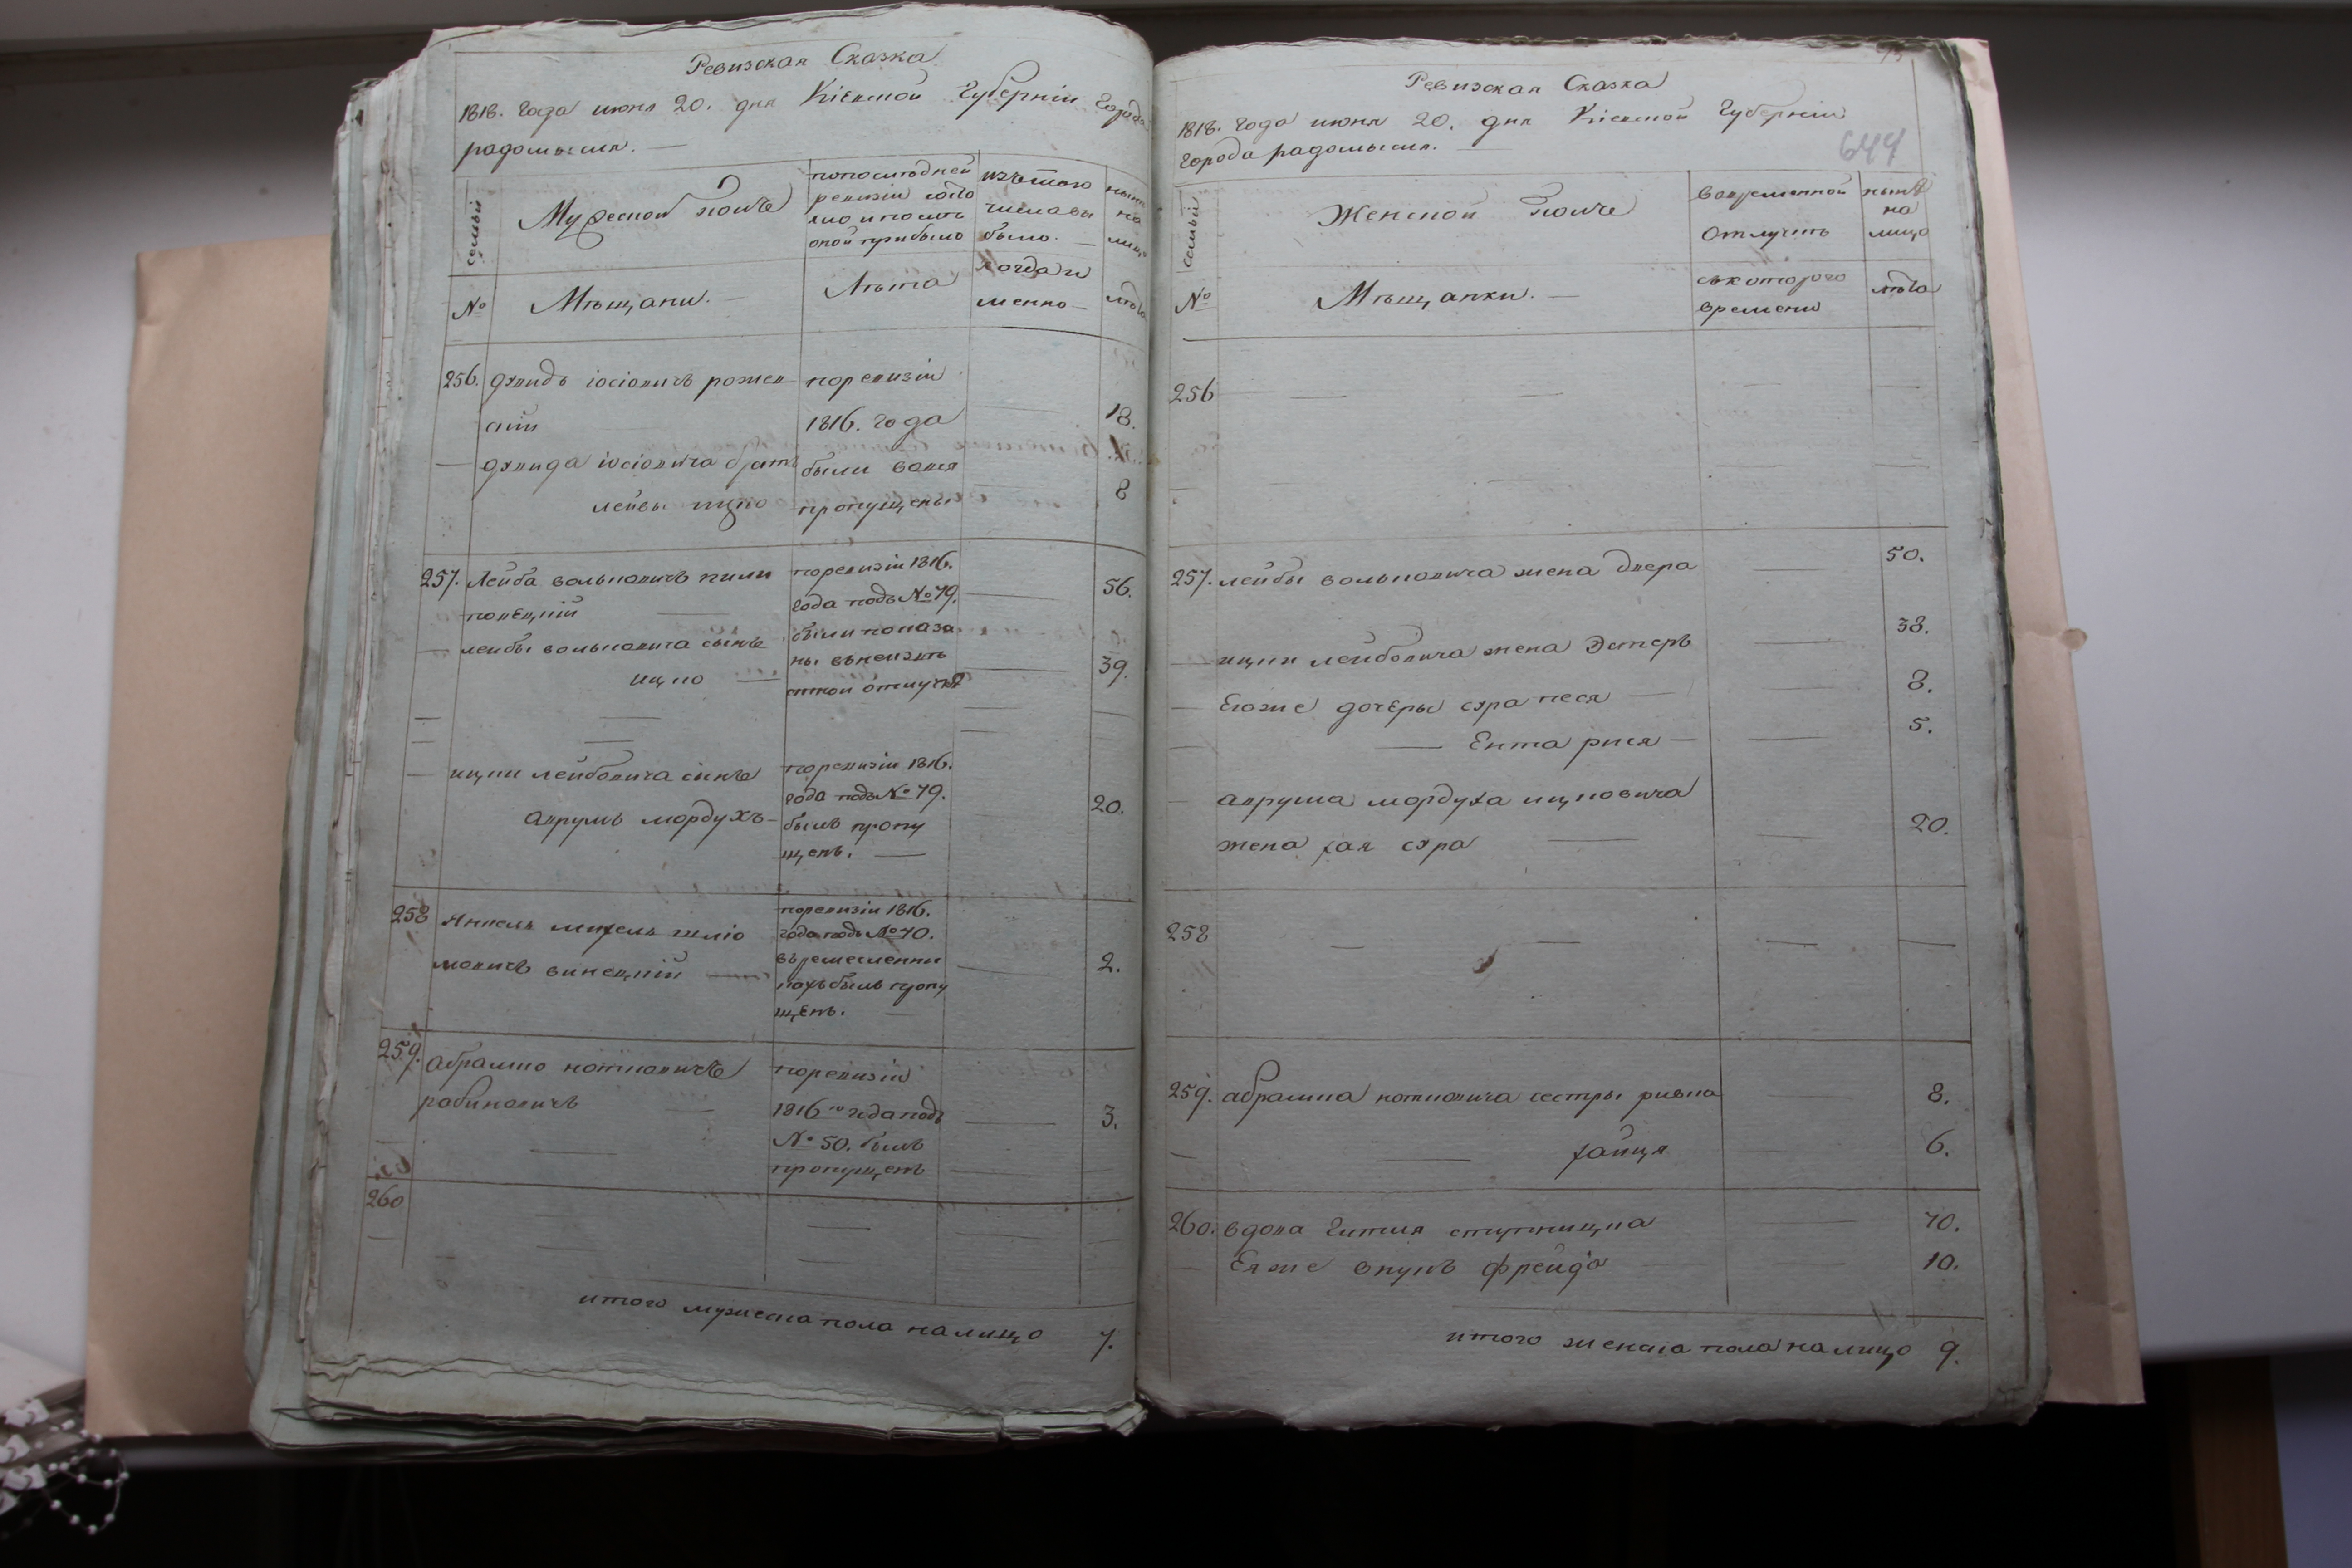 Ревизская Сказка
1818. года июня 20. дня Кіевской Губерніи Города
радомысля.
семьи
Мужеской полъ
попоследней
ревизіи состо
яло и после
оной прибыло
изътого
числа вы
было.
ныне
на
лицо
№
Мѣщани.
Лѣта
когда и
менно
лѣта
256. дувидъ іосіовичъ рожев
скій
поревизіи
1816. года
18.
дувида іосіовича братъ
лейвы ицко
были вовся
пропущены
8
257. Лейба вольковичъ пили
повецкій
поревизіи 1816.
года подъ № 79.
56.
лейбы вольковича сынъ
ицко
были показа
ны въ
отлучкѣ
39.
ицки лейбовича синъ
аврумъ мордухъ
поревизіи 1816.
года подъ № 79.
былъ пропу
щенъ.
20.
258 Янкель михель шлю
мовичъ винецкій
поревизіи 1816.
года подъ № 70.
времесленни
кахъ былъ пропу
щенъ.
2.
259. абрамко
рабиновичъ
поревизіи
1816 го года подъ
№ 50. былъ
пропущенъ
3.
260
итого мужеска пола налицо 7.
Ревизская Сказка
1818. года июня 20. дня Кіевской Губерніи
Города радомысля.
644
семьи
Женской полъ
вовременной
отлучке
ныне
на
лицо
№
Мѣщанки.
съкоторого
времени
лѣта
256
257. лейбы вольковича жена двера 50.
ицки лейбовича жена Эстеръ 38.
Егоже дочеры сура песя 8.
Ента рися 5.
аврума мордуха ицковича
жена хая сура 20.
258
259. абрамка сестры ривка 8.
хайця 6.
260. вдова Гитля 70.
Еяже внукъ фрейда 10.
итого женска пола налицо 9.